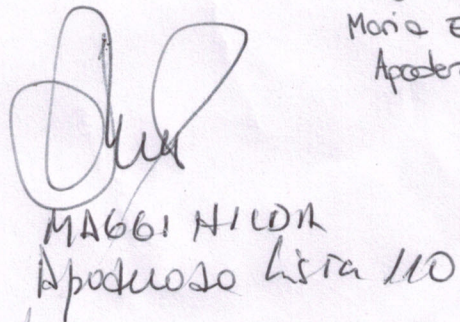 Maria E
Apoder
MAGGI HILDA
Apoderado Lista 110